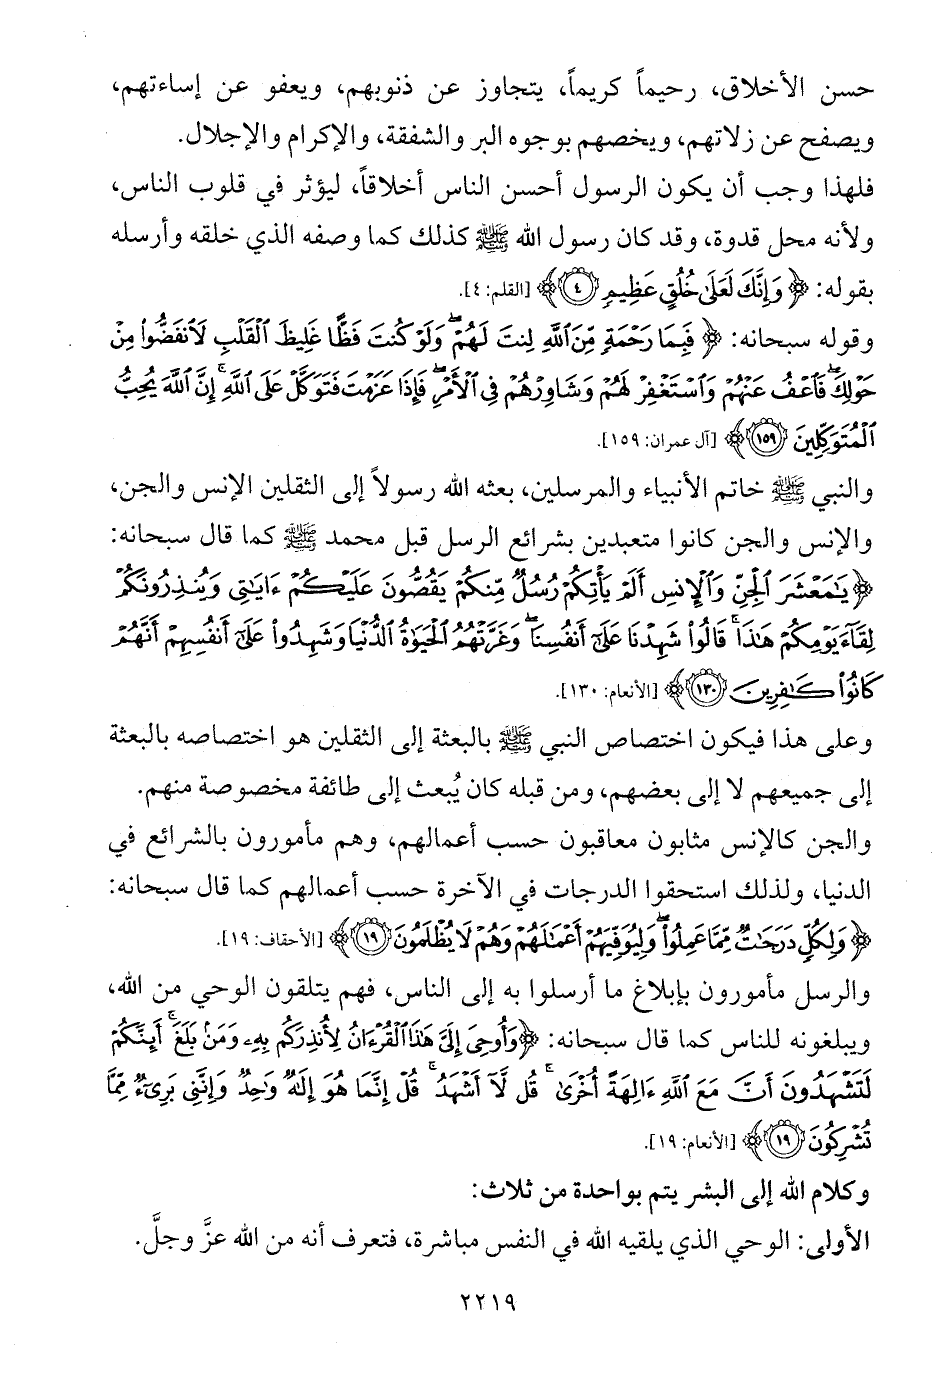 حسن الأخلاق، رحيماً كريماً، يتجاوز عن ذنوبهم، ويعفو عن إساءتهم،
ويصفح عن زلاتهم، ويخصهم بوجوه البر والشفقة، والإكرام والإجلال.
فلهذا وجب أن يكون الرسول أحسن الناس أخلاقاً، ليؤثر في قلوب الناس،
ولأنه محل قدوة، وقد كان رسول الله ﷺ كذلك كما وصفه الذي خلقه وأرسله
بقوله: ﴿وَإِنَّكَ لَعَلَىٰ خُلُقٍ عَظِيمٍ ٤﴾ [القلم: ٤].
وقوله سبحانه: ﴿فَبِمَا رَحْمَةٍ مِّنَ ٱللَّهِ لِنتَ لَهُمْ ۖ وَلَوْ كُنتَ فَظًّا غَلِيظَ ٱلْقَلْبِ لَٱنفَضُّوا۟ مِنْ
حَوْلِكَ ۖ فَٱعْفُ عَنْهُمْ وَٱسْتَغْفِرْ لَهُمْ وَشَاوِرْهُمْ فِى ٱلْأَمْرِ ۖ فَإِذَا عَزَمْتَ فَتَوَكَّلْ عَلَى ٱللَّهِ ۚ إِنَّ ٱللَّهَ يُحِبُّ
ٱلْمُتَوَكِّلِينَ ١٥٩﴾ [آل عمران: ١٥٩].
والنبي ﷺ خاتم الأنبياء والمرسلين، بعثه الله رسولاً إلى الثقلين الإنس والجن،
والإنس والجن كانوا متعبدين بشرائع الرسل قبل محمد ﷺ كما قال سبحانه:
﴿يَـٰمَعْشَرَ ٱلْجِنِّ وَٱلْإِنسِ أَلَمْ يَأْتِكُمْ رُسُلٌ مِّنكُمْ يَقُصُّونَ عَلَيْكُمْ ءَايَـٰتِى وَيُنذِرُونَكُمْ
لِقَآءَ يَوْمِكُمْ هَـٰذَا ۚ قَالُوا۟ شَهِدْنَا عَلَىٰٓ أَنفُسِنَا ۖ وَغَرَّتْهُمُ ٱلْحَيَوٰةُ ٱلدُّنْيَا وَشَهِدُوا۟ عَلَىٰٓ أَنفُسِهِمْ أَنَّهُمْ
كَانُوا۟ كَـٰفِرِينَ ١٣٠﴾ [الأنعام: ١٣٠].
وعلى هذا فيكون اختصاص النبي ﷺ بالبعثة إلى الثقلين هو اختصاصه بالبعثة
إلى جميعهم لا إلى بعضهم، ومن قبله كان يُبعث إلى طائفة مخصوصة منهم.
والجن كالإنس مثابون معاقبون حسب أعمالهم، وهم مأمورون بالشرائع في
الدنيا، ولذلك استحقوا الدرجات في الآخرة حسب أعمالهم كما قال سبحانه:
﴿وَلِكُلٍّ دَرَجَـٰتٌ مِّمَّا عَمِلُوا۟ ۖ وَلِيُوَفِّيَهُمْ أَعْمَـٰلَهُمْ وَهُمْ لَا يُظْلَمُونَ ١٩﴾ [الأحقاف: ١٩].
والرسل مأمورون بإبلاغ ما أرسلوا به إلى الناس، فهم يتلقون الوحي من الله،
ويبلغونه للناس كما قال سبحانه: ﴿وَأُوحِىَ إِلَىَّ هَـٰذَا ٱلْقُرْءَانُ لِأُنذِرَكُم بِهِۦ وَمَنۢ بَلَغَ ۚ أَئِنَّكُمْ
لَتَشْهَدُونَ أَنَّ مَعَ ٱللَّهِ ءَالِهَةً أُخْرَىٰ ۚ قُل لَّآ أَشْهَدُ ۚ قُلْ إِنَّمَا هُوَ إِلَـٰهٌ وَٰحِدٌ وَإِنَّنِى بَرِىٓءٌ مِّمَّا
تُشْرِكُونَ ١٩﴾ [الأنعام: ١٩].
وكلام الله إلى البشر يتم بواحدة من ثلاث:
الأولى: الوحي الذي يلقيه الله في النفس مباشرة، فتعرف أنه من الله عزَّ وجلَّ.
٢٢١٩